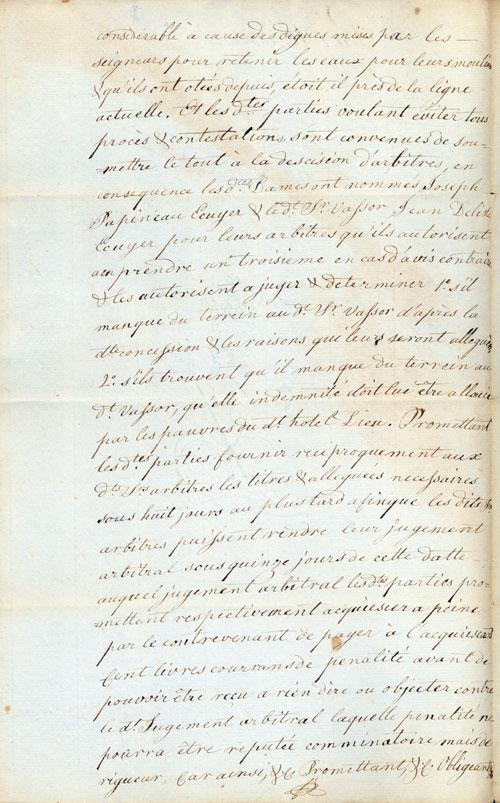 considerable à cause des digues mises par les —
seigneurs pour retenir les eaux pour leurs moulin
& qu'ils ont otées depuis, étoit il près de la ligne
actuelle. Et les dtes parties voulant éviter tous
procès & contestations, sont convenues de sou-
-mettre le tout à la descision d'arbitres, en
consequence les dtes Dames ont nommés Joseph
Papineau Ecuyer & le dt. Sr. Vassor Jean Delisle
Ecuyer pour leurs arbitres qu'ils autorisent
a en prendre un troisieme en cas d'avis contraire
& les autorisent a juger & determiner 1o. s'il
manque du terrein au dt. Sr. Vassor d'après la
dte concession & les raisons qui leurs seront allegués
2o. s'ils trouvent qu'il manque du terrein au
dt. Vassor, qu'elle indemnité doit lui être allouée
par les pauvres du dt hotel Dieu. Promettant
les dtes parties fournir reciproquement aux
dts Srs arbitres les titres & allegués necessaires
sous huit jours au plus tard afin que les dits Srs
arbitres puissent rendre leur jugement
arbitral sous quinze jours de cette datte —
auquel jugement arbitral les dtes parties pro-
-mettent respectivement acquiescer a peine
par le contrevenant de payer à l'acquiescant
Cent livres courrans de penalité avant de
pouvoir être reçu a rien dire ou objecter contre
le dt. Jugement arbitral laquelle penalité ne
pourra être reputée comminatoire mais de
rigueur, Car ainsi, &c Promettant, &c Obligeant